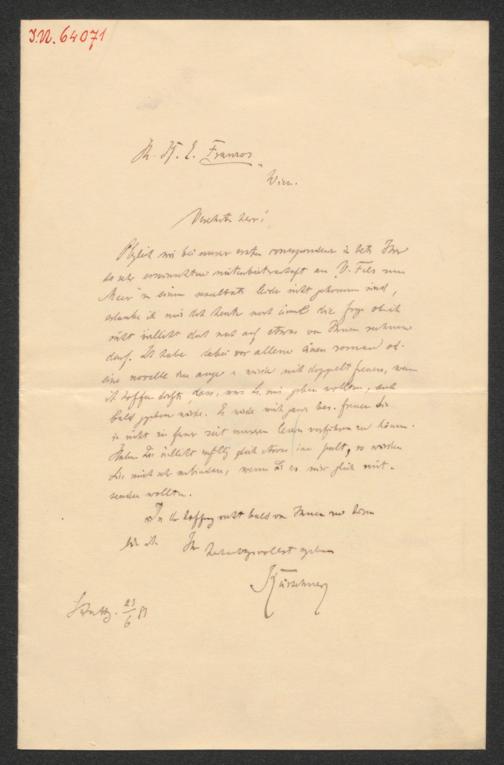 J.N. 64071
K. E. Franzos
Wien.
Verehrter Herr!
wir bei unserer ersten correspondenz in betr. Ihr
so sehr erwünschten mitarbeiterschaft an V. Fels zum
Meer in einem resultate leider nicht gekommen sind,
erlaube ich mir doch heute noch einmal die frage ob ich
nicht vielleicht doch noch auf etwas von Ihnen rechnen
darf. Ich habe dabei vor allem einen roman od.
eine novelle im auge u. würde mich doppelt freuen, wenn
ich hoffen dürfte, dass, was Sie mir geben wollten, auch
bald
in nicht zu ferner zeit unsern lesern vorführen zu können.
Haben Sie vielleicht gleich etwas im pult, so würden
Sie mich sehr verbinden, wenn Sie es mir gleich mit-
senden wollten.
In der hoffnung recht bald von Ihnen zu hören
bin ich Ihr hochachtungsvollst ergebener
Kürschner
Stuttg. 23/6 81